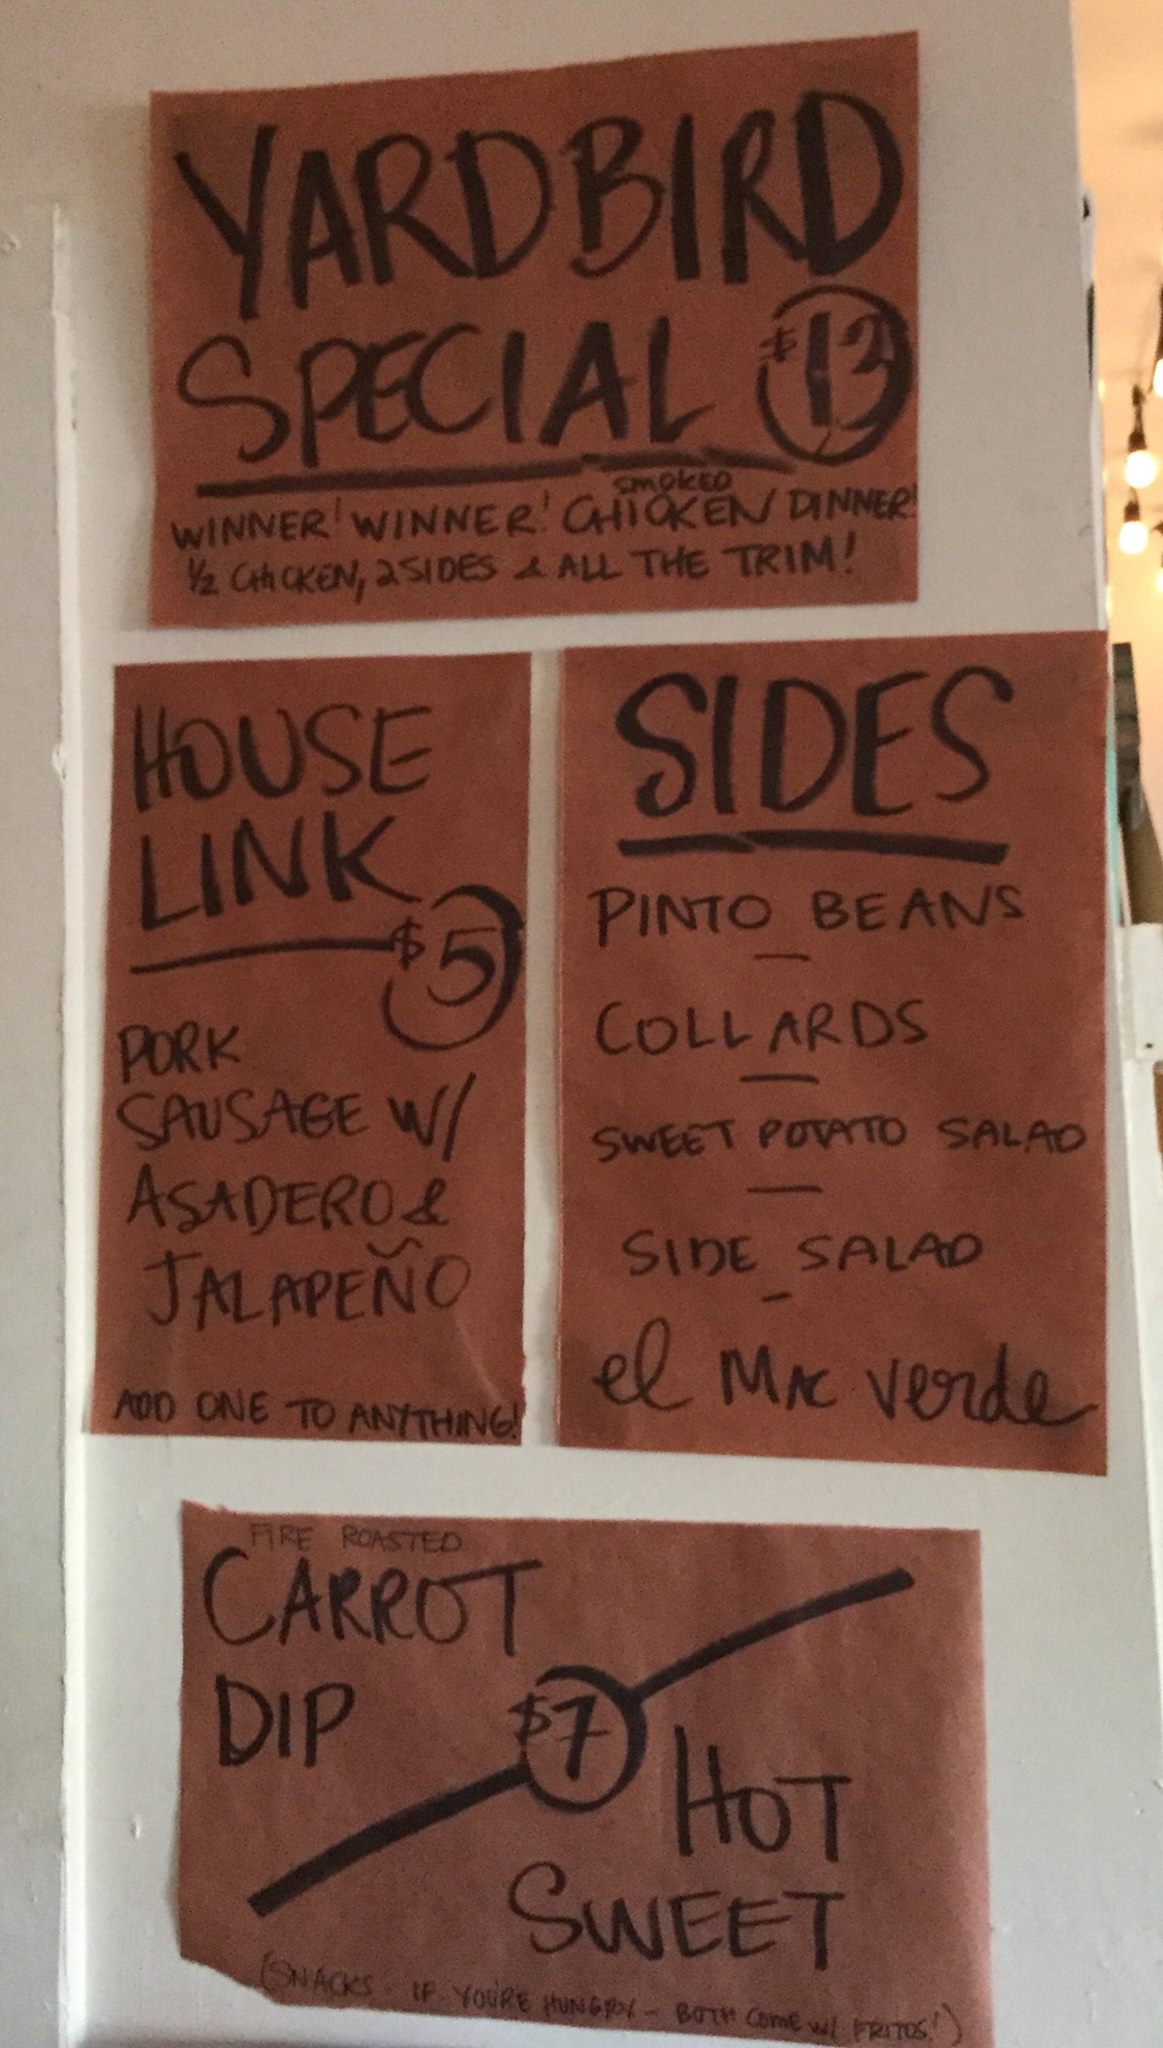 YARDBIRD
SPECIAL $13
SMOKED
WINNER! WINNER! CHICKEN DINNER!
1/2 CHICKEN, 2 SIDES & ALL THE TRIM!
HOUSE
LINK
$5
PORK
SAUSAGE W/
ASADERO &
JALAPEÑO
ADD ONE TO ANYTHING!
SIDES
PINTO BEANS
COLLARDS
SWEET POTATO SALAD
SIDE SALAD
el MAC verde
FIRE ROASTED
CARROT
DIP
$7
HOT
SWEET
(SNACKS IF YOU'RE HUNGRY - BOTH COME W/ FRITOS!)